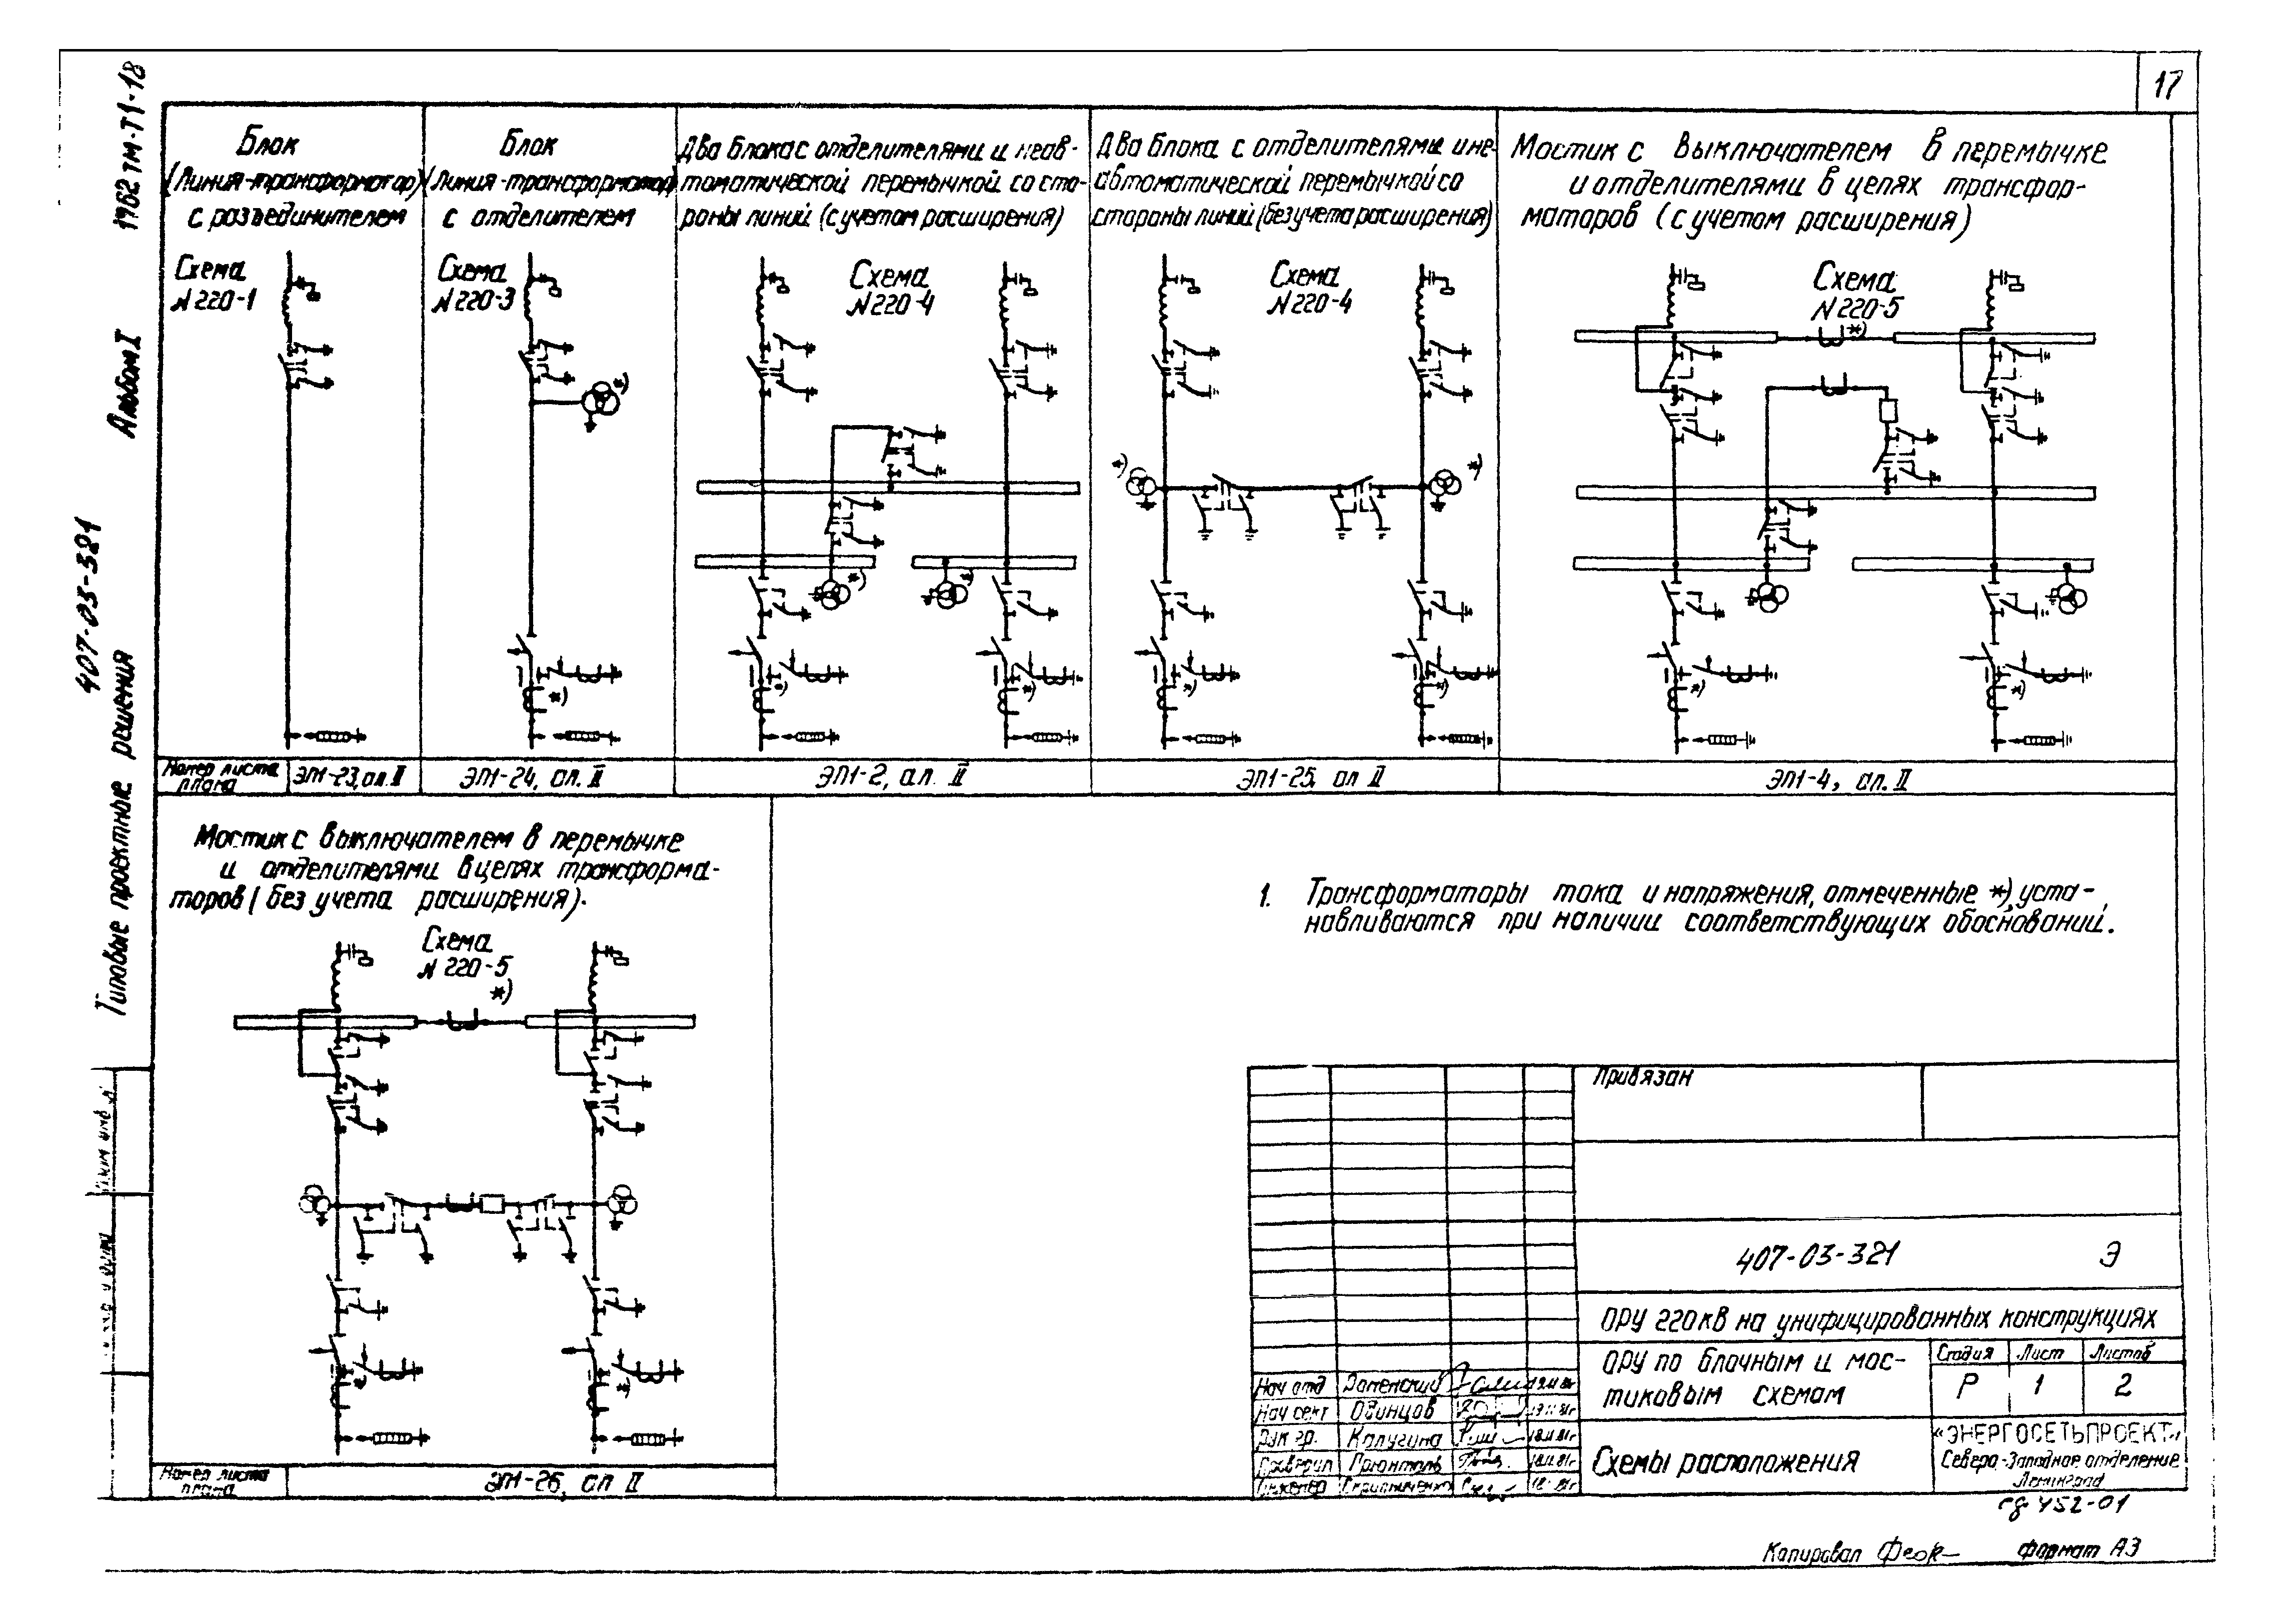 17
1962 тм-Т1-18
Альбом I
407-03-321
Типовые проектные решения
Блок
(Линия-трансформатор)
с разъединителем
Схема
N 220-1
Блок
(Линия-трансформатор)
с отделителем
Схема
N 220-3
Два блока с отделителями и неав-
томатической перемычкой со сто-
роны линий (с учетом расширения)
Схема
N 220-4
Два блока с отделителями и не-
автоматической перемычкой со
стороны линий (без учета расширения)
Схема
N 220-4
Мостик с выключателем в перемычке
и отделителями в цепях трансфор-
маторов (с учетом расширения)
Схема
N 220-5
*)
*)
*)
*)
*)
*)
*)
*)
*)
*)
*)
*)
*)
*)
Номер листа
плана
ЭП1-23, ал. II
ЭП1-24, ал. II
ЭП1-2, ал. II
ЭП1-25, ал II
ЭП1-4, ал. II
Мостик с выключателем в перемычке
и отделителями в цепях трансформа-
торов (без учета расширения).
Схема
N 220-5
*)
*)
*)
Номер листа
плана
ЭП1-26, ал II
1. Трансформаторы тока и напряжения, отмеченные *), уста-
навливаются при наличии соответствующих обоснований.
Привязан
407-03-321 Э
ОРУ 220 кВ на унифицированных конструкциях
ОРУ по блочным и мос-
тиковым схемам
Стадия Лист Листов
Р 1 2
Схемы расположения
«ЭНЕРГОСЕТЬПРОЕКТ»
Северо-Западное отделение
Ленинград
Нач отд
Нач сект Одинцов
Рук гр. Калугина 18.11.81г
Проверил
Инженер
Копировал
Формат А3